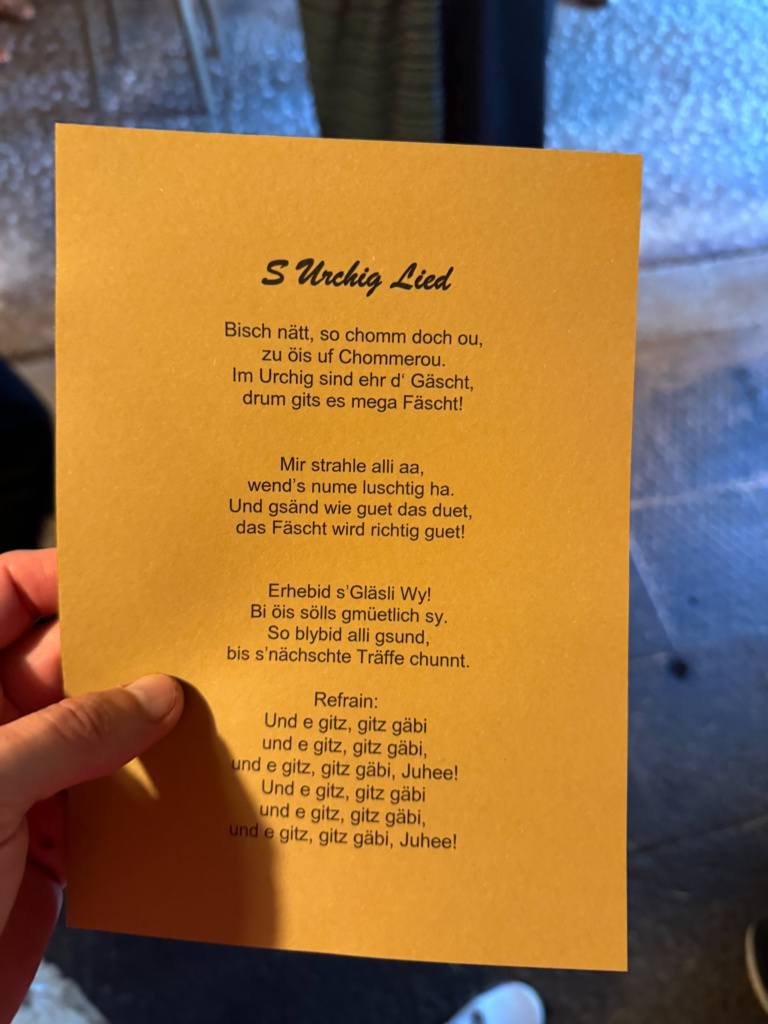 S Urchig Lied
Bisch nätt, so chomm doch ou,
zu öis uf Chommerou.
Im Urchig sind ehr d' Gäscht,
drum gits es mega Fäscht!
Mir strahle alli aa,
wend's nume luschtig ha.
Und gsänd wie guet das duet,
das Fäscht wird richtig guet!
Erhebid s'Gläsli Wy!
Bi öis sölls gmüetlich sy.
So blybid alli gsund,
bis s'nächschte Träffe chunnt.
Refrain:
Und e gitz, gitz gäbi
und e gitz, gitz gäbi,
und e gitz, gitz gäbi, Juhee!
Und e gitz, gitz gäbi
und e gitz, gitz gäbi,
und e gitz, gitz gäbi, Juhee!